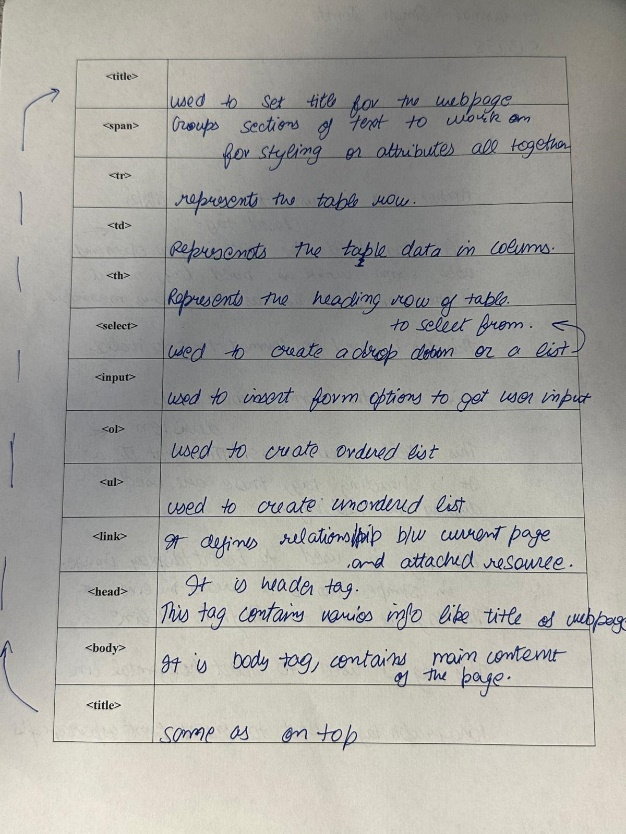 <title>
used to set title for the webpage
<span>
Groups sections of text to work on
for styling or attributes all together
<tr>
represents the table row.
<td>
Represents the table data in colums.
<th>
Represents the heading row of table.
<select>
to select from.
used to create a drop down or a list
<input>
used to insert form options to get user input
<ol>
used to create ordered list
<ul>
used to create unordered list
<link>
It defines relationship b/w current page
and attached resource.
<head>
It is header tag.
This tag contains varios info like title of webpage
<body>
It is body tag, contains main content
of the page.
<title>
same as on top